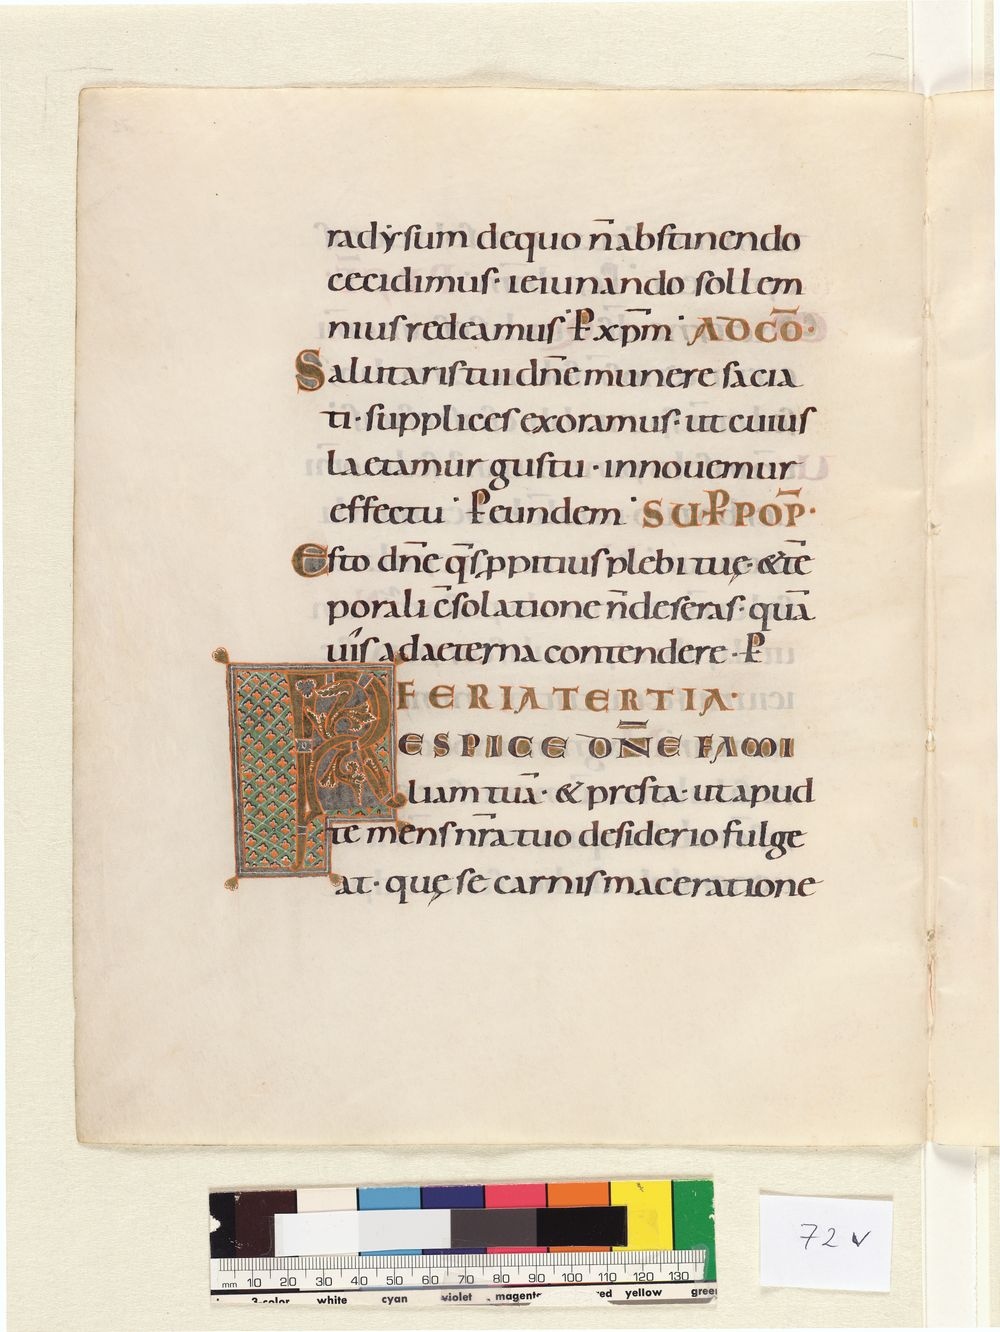 radẏsum dequo n̄abstinendo
cecidimus· ieiunando sollem
nius redeamus· P xp̄m· AD CŌ·
Salutaris tui dn̄e munere sacia
ti· supplices exoramus· ut cuius
laetamur gustu· innouemur
effectu· P eundem· SUPPOP̄·
Esto dn̄e q̄s ppitius plebi tuę· & tē
porali c̄solatione n̄deseras· quā
uis adaeterna contendere· P
FERIA TERTIA·
RESPICE DN̄E FAMI
liam tuā· & presta· ut apud
te mens nr̄a tuo desiderio fulge
at· quę se carnis maceratione
mm 10 20 30 40 50 60 70 80 90 100 110 120 130
3-color white cyan violet magenta red yellow green
72 v